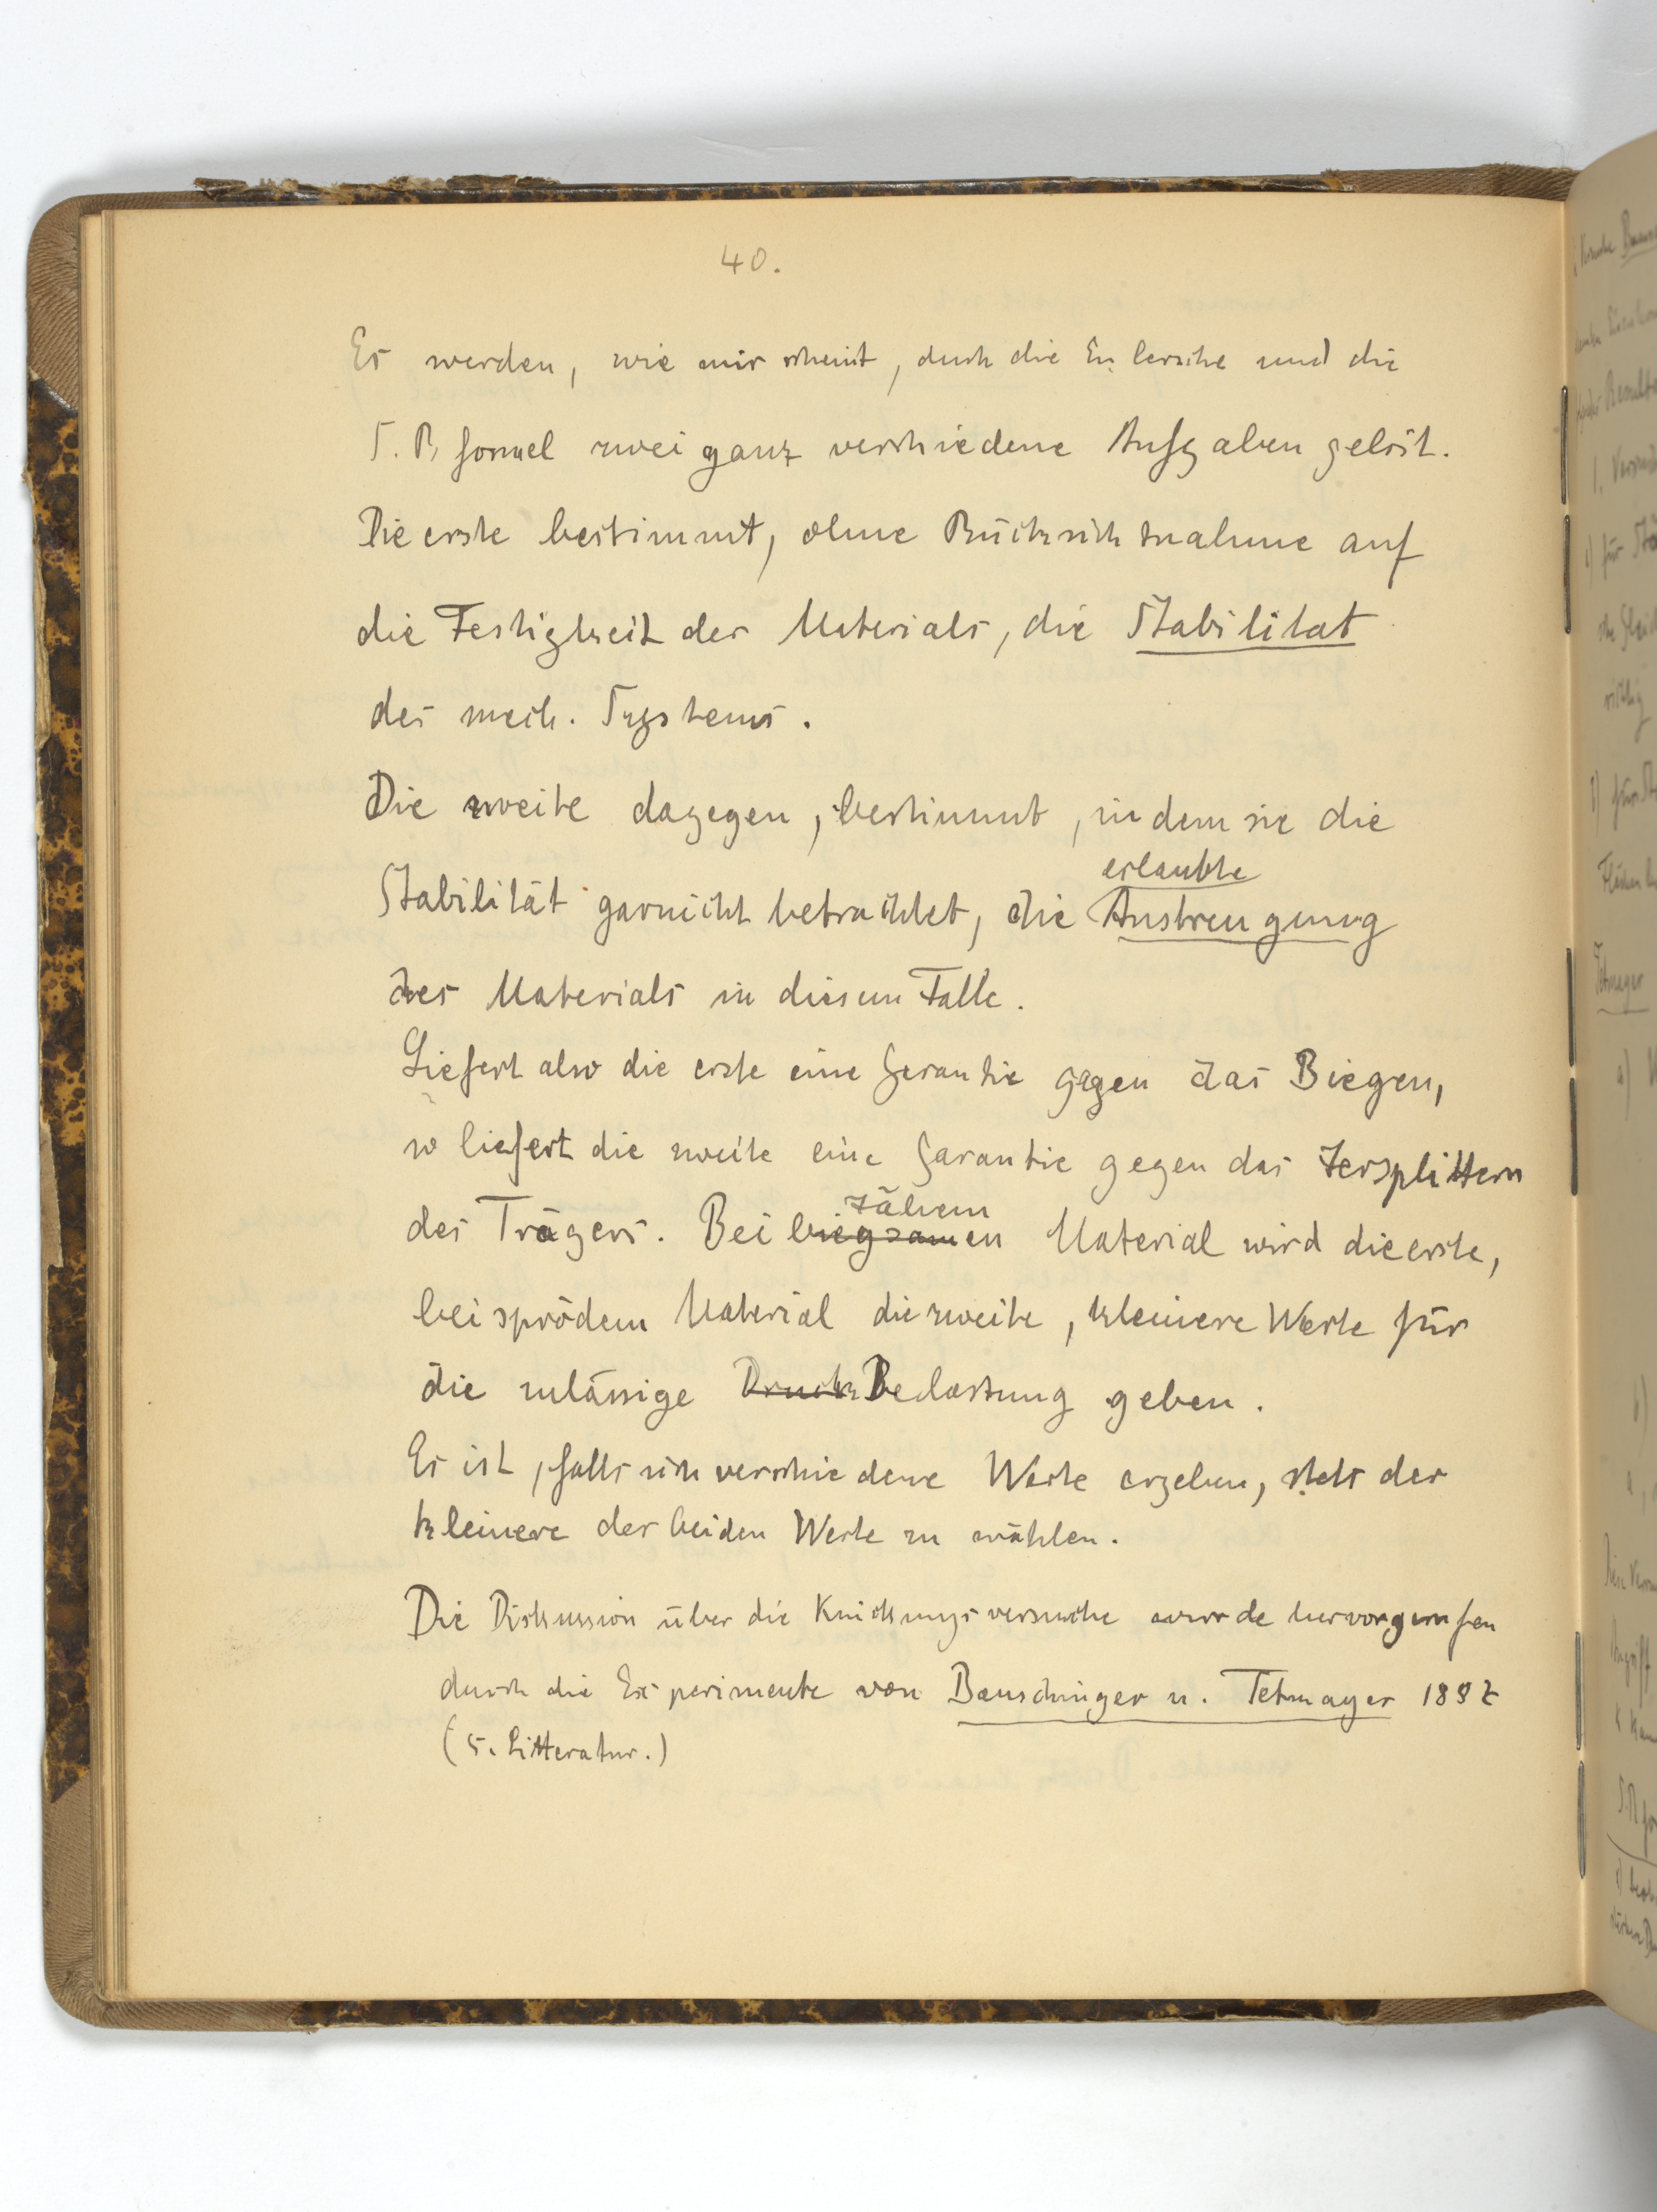 40.
Es werden, wie mir scheint, durch die Eulersche und die
S. R. formel zwei ganz verschiedene Aufgaben gelöst.
Die erste bestimmt, ohne Rücksichtnahme auf
die Festigkeit des Materials, die Stabilität
des mech. Systems.
Die zweite dagegen, bestimmt, indem sie die
Stabilität garnicht betrachtet, die erlaubte Anstrengung
des Materials in diesem Falle.
Liefert also die erste eine Garantie gegen das Biegen,
so liefert die zweite eine Garantie gegen das Zersplittern
des Trägers. Bei biegsamen zähem Material wird die erste,
bei sprödem Material die zweite, kleinere Werte für
die zulässige Druck Belastung geben.
Es ist, falls sich verschiedene Werte ergeben, stets der
kleinere der beiden Werte zu wählen.
Die Diskussion über die Knickungsversuche wurde hervorgerufen
durch die Experimente von Bauschinger u. Tetmayer
(s. Litteratur.)